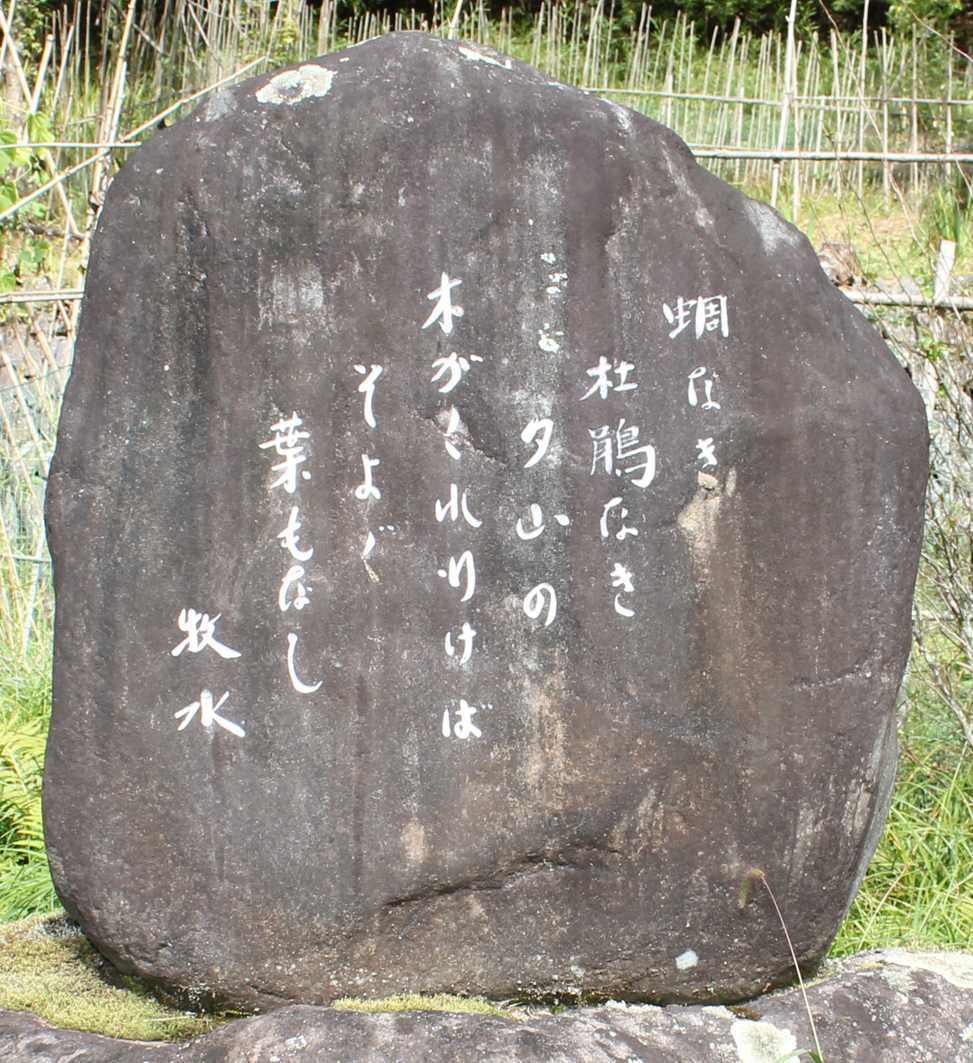 蜩なき
杜鵑なき
夕山の
木がくれりけば
そよぐ
葉もなし
牧水